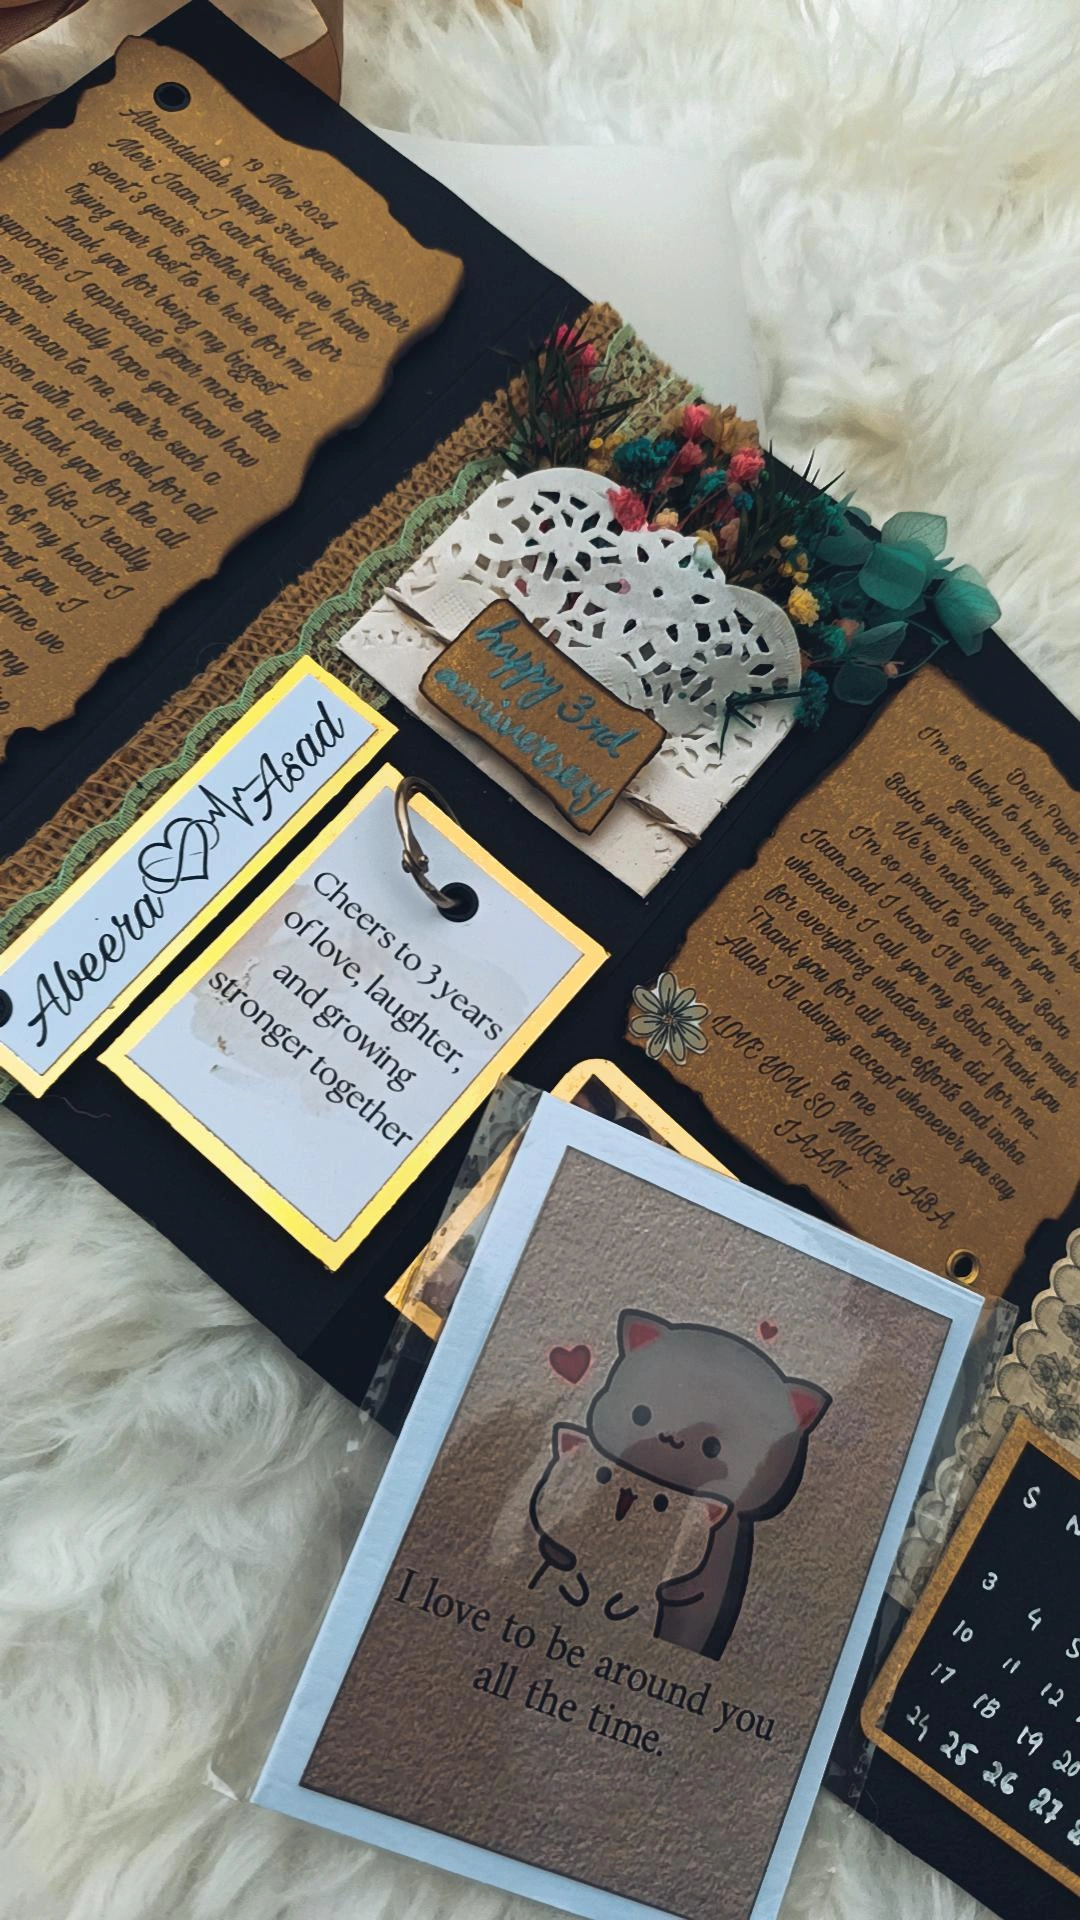 19 Nov 2024
Alhamdulillah happy 3rd years together
Meri Jaan...I cant believe we have
spent 3 years together, thank U for
trying your best to be here for me
...thank you for being my biggest
supporter I appreciate your more than
show. really hope you know how
you mean to me, you're such a
with a pure soul..for all
to thank you for the all
life...I really
of my heart I
you I
time we
my
happy 3rd
anniversary
Abeera Asad
Cheers to 3 years
of love, laughter,
and growing
stronger together
Dear Papa
I'm so lucky to have your
guidance in my life.
Baba you've always been my
We're nothing without you..
I'm so proud to call you my Baba
Jaan..and I know I'll feel proud so much
whenever I call you my Baba Thank you
for everything whatever you did for me...
Thank you for all your efforts and insha
Allah I'll always accept whenever you say
to me
LOVE YOU SO MUCH BABA
JAAN...
I love to be around you
all the time.
S
3 4 5
10 11 12
17 18 19 20
24 25 26 27